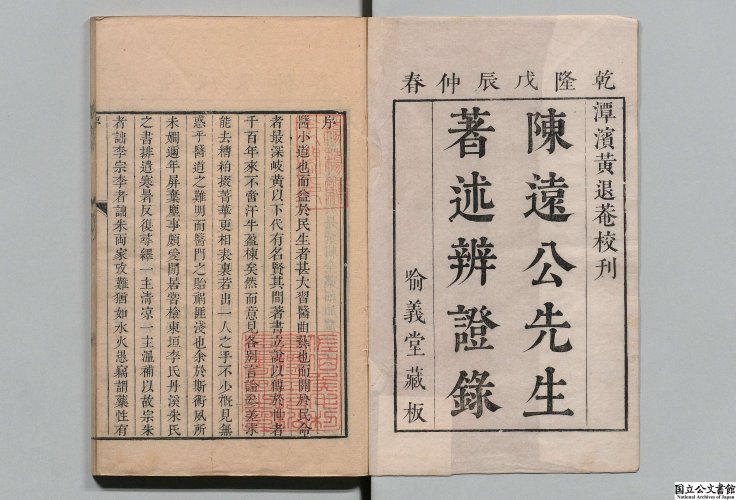 乾隆戊辰仲春
潭濱黄退菴校刊
陳遠公先生
著述辨證錄
喻義堂藏板
序
醫小道也而益於民生者甚大習醫曲藝也而關於民命
者最深岐黄以下代有名賢其間著書立說以傳於世者
千百年來不啻汗牛盈棟矣然而意見各別言論參差求
能去糟粕掇菁華更相表裏若出一人之手不少概見無
惑乎醫道之難明而醫門之貽禍匪淺也余於斯術夙所
未嫺邇年屏棄塵事頗愛閒居嘗檢東垣李氏丹溪朱氏
之書排遣寒暑反復尋繹一主清凉一主溫補以故宗朱
者詘李宗李者詘朱兩家攻難猶如水火愚竊謂藥性有
序
国立公文書館
National Archives of Japan